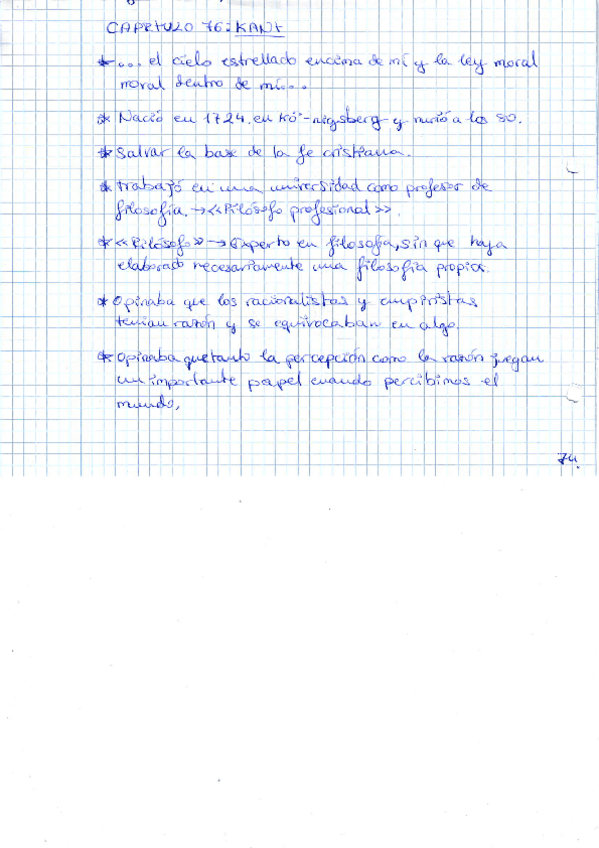 CAPÍTULO 76: KANT
* ... el cielo estrellado encima de mí y la ley moral
moral dentro de mí...
* Nació en 1724. en Kö-nigsberg y murió a los 80.
* Salvar la base de la fe cristiana.
* trabajó en una universidad como profesor de
filosofía. → <<Filósofo profesional>>.
* <<Filósofo>> → Experto en filosofía, sin que haya
elaborado necesariamente una filosofía propia.
* Opinaba que los racionalistas y empiristas
tenían razón y se equivocaban en algo.
* Opinaba que tanto la percepción como la razón juegan
un importante papel cuando percibimos el
mundo,
74.